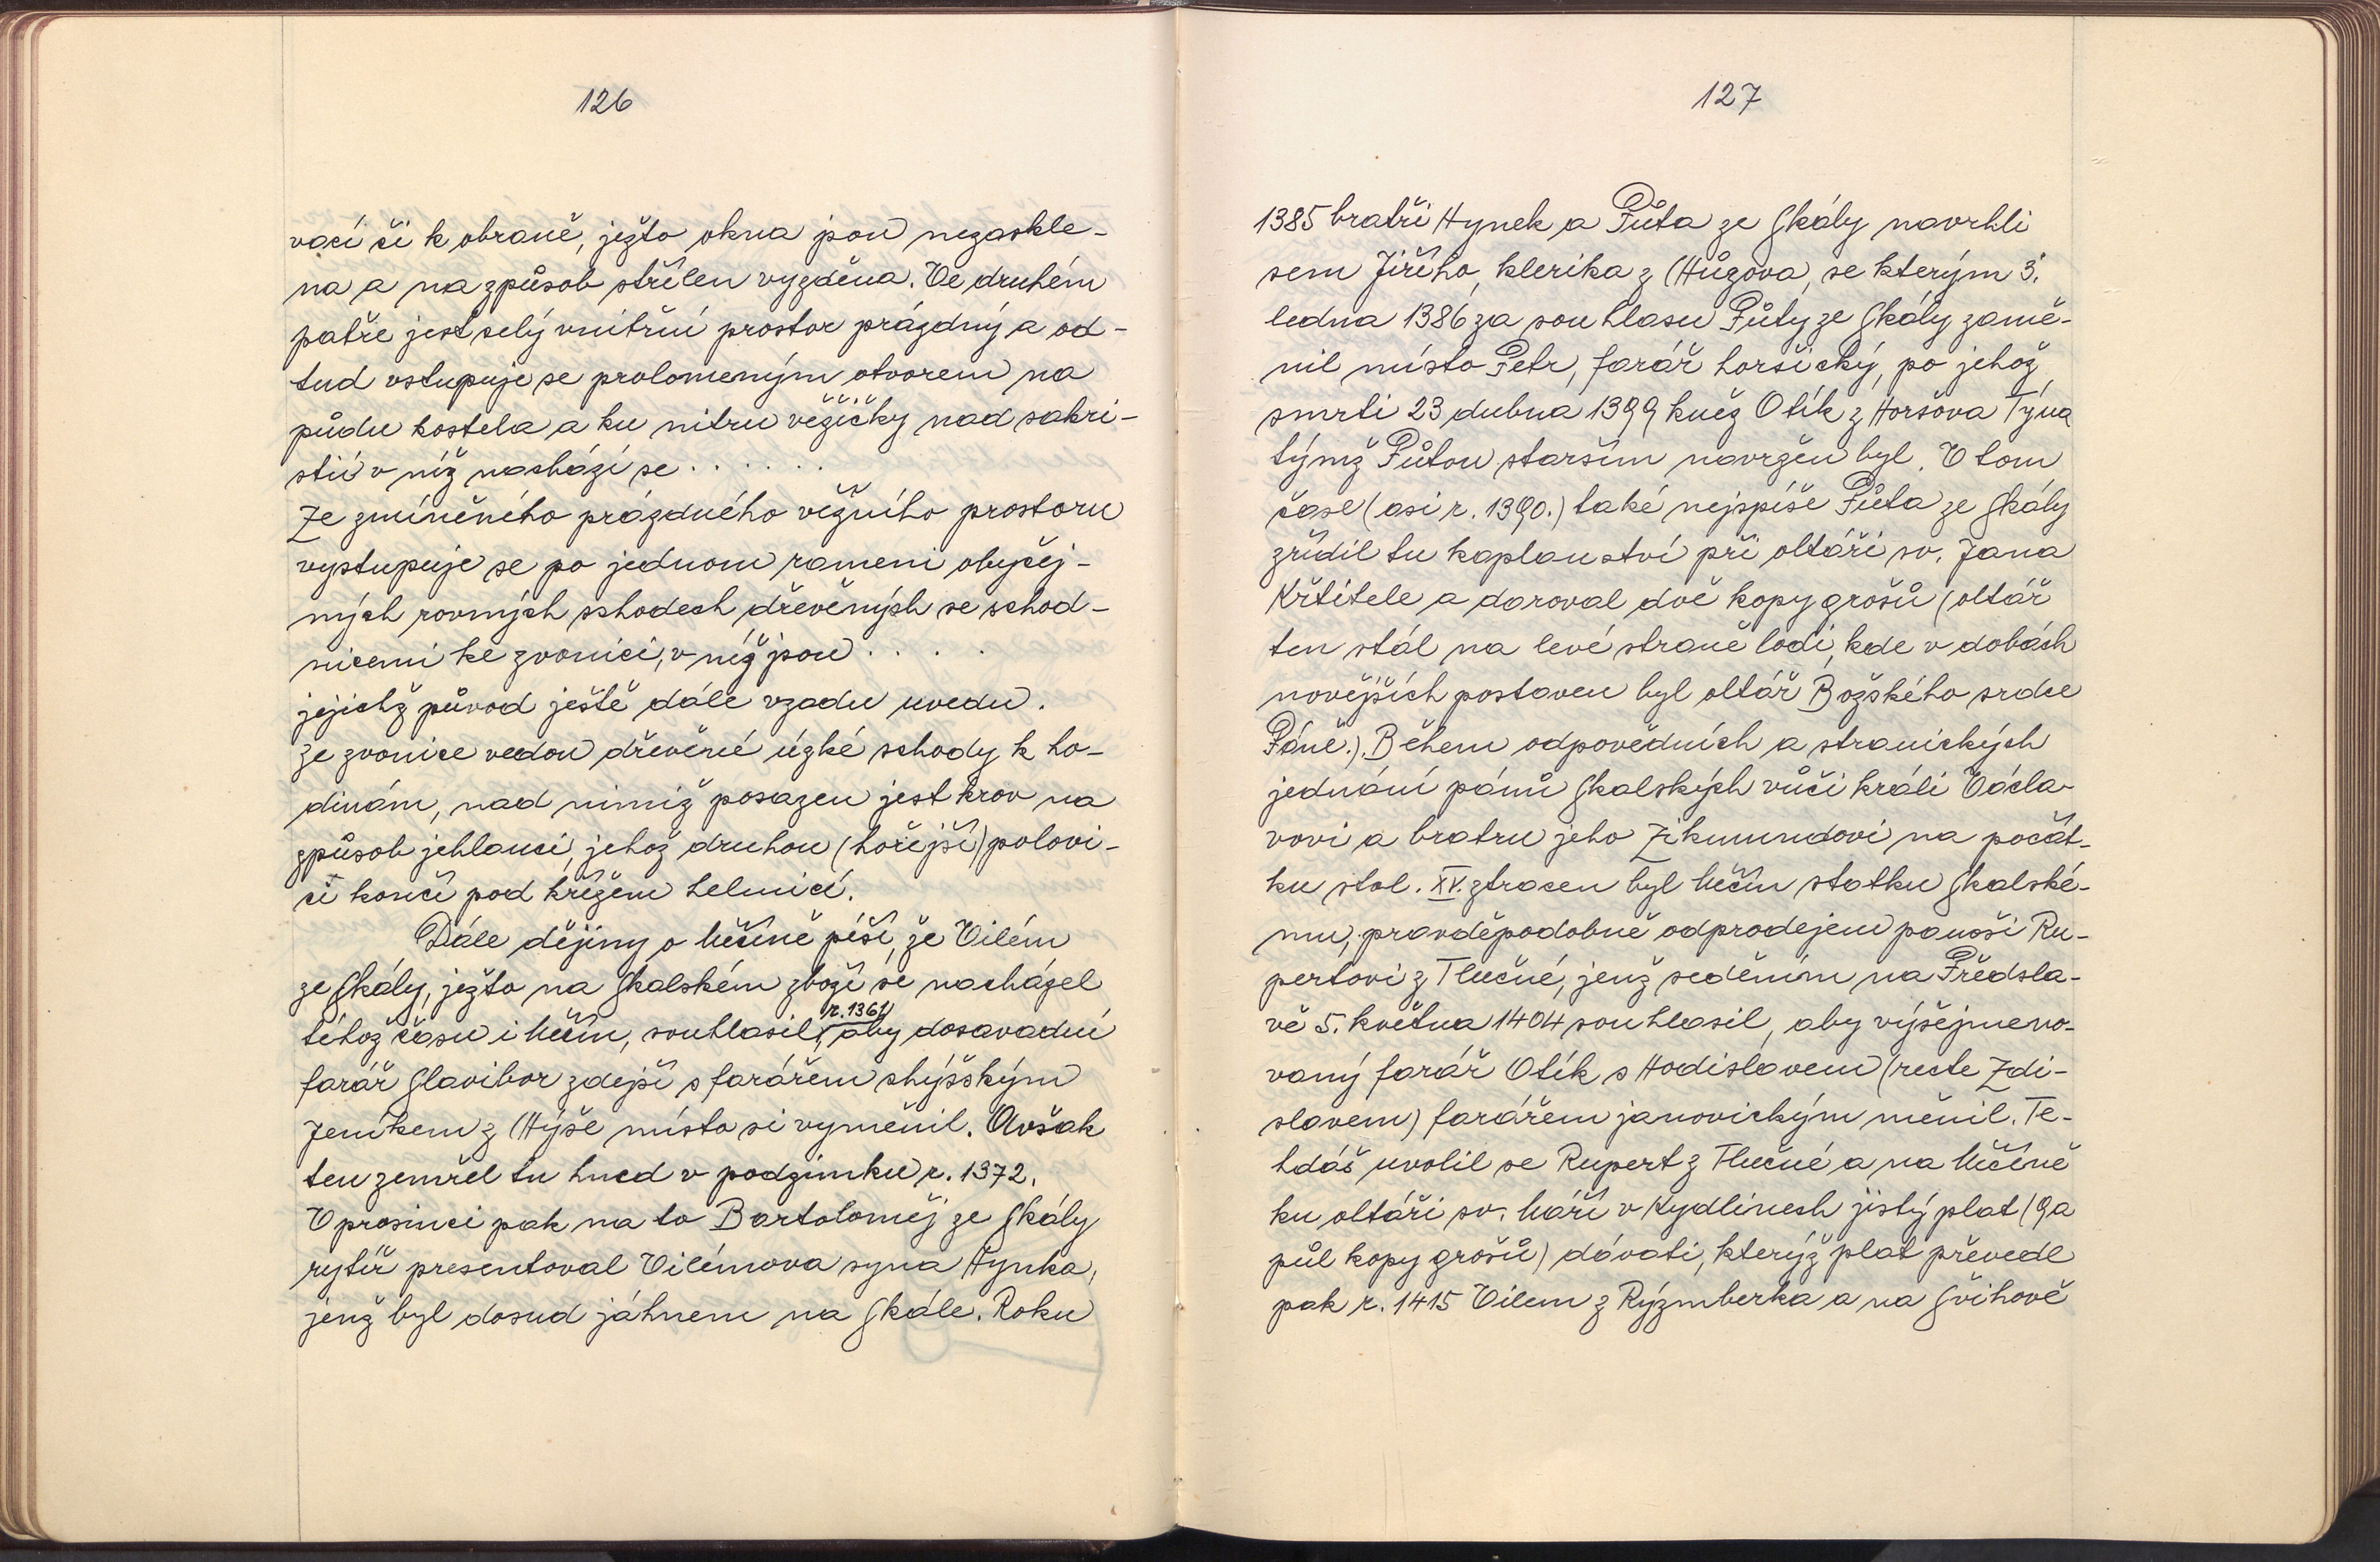 126
vací či k obraně, ježto okna jsou nezaskle-
na a na způsob střílen vyzděna. Ve druhém
patře jest celý vnitřní prostor prázdný a od-
tud vstupuje se prolomeným otvorem na
půdu kostela a ku nitru věžičky nad sakri-
stií v níž nachází se . . . . . .
Ze zmíněného prázdného věžního prostoru
vystupuje se po jednom rameni obyčej-
ných rovných schodech dřevěných se schod-
nicemi ke zvonici, v níž jsou . . . .
jejichž původ ještě dále vzadu uvedu.
Ze zvonice vedou dřevěné úzké schody k ho-
dinám, nad nimiž posazen jest krov na
způsob jehlanci, jehož druhou (hořejší) polovi-
ci končí pod křížem helmicí.
Dále dějiny o Měčíně píší, že Vilém
ze Skály, ježto na Skalském zboží se nacházel
r. 1361
téhož času i Měčín, souhlasil, aby dosavadní
farář Slavibor zdejší s farářem chýšským
Jeníkem z Chýše místo si vyměnil. Avšak
ten zemřel tu hned v podzimku r. 1372.
V prosinci pak na to Bartoloměj ze Skály
rytíř presentoval Vilémova syna Hynka,
jenž byl dosud jáhnem na Skále. Roku
127
1385 bratři Hynek a Půta ze Skály navrhli
sem Jiřího, klerika z Chůzova, se kterým 3.
ledna 1386 za souhlasu Půty ze Skály zamě-
nil místo Petr, farář horšický, po jehož
smrti 23 dubna 1399 kněz Otík z Horšova Týna
týmž Půtou starším navržen byl. V tom
čase (asi r. 1390.) také nejspíše Půta ze Skály
zřídil tu kaplanství při oltáři sv. Jana
Křtitele a daroval dvě kopy grošů (oltář
ten stál na levé straně lodi, kde v dobách
novějších postaven byl oltář Božského srdce
Páně.). Během odpovědních a stranických
jednání pánů Skalských vůči králi Václa-
vovi a bratru jeho Zikmundovi na počát-
ku stol. XV. ztracen byl Měčín statku Skalské-
mu, pravděpodobně odprodejem panoši Ru-
pertovi z Tlučné, jenž seděním na Předsla-
vě 5. května 1404 souhlasil, aby výšejmeno-
vaný farář Otík s Hodislavem (recte Zdi-
slavem) farářem janovickým měnil. Te-
hdáž uvolil se Rupert z Tlučné a na Měčíně
ku oltáři sv. Máří v Kydlinech jistý plat (9 a
půl kopy grošů) dávati, kterýž plat převedl
pak r. 1415 Vilem z Rýzmberka a na Švihově